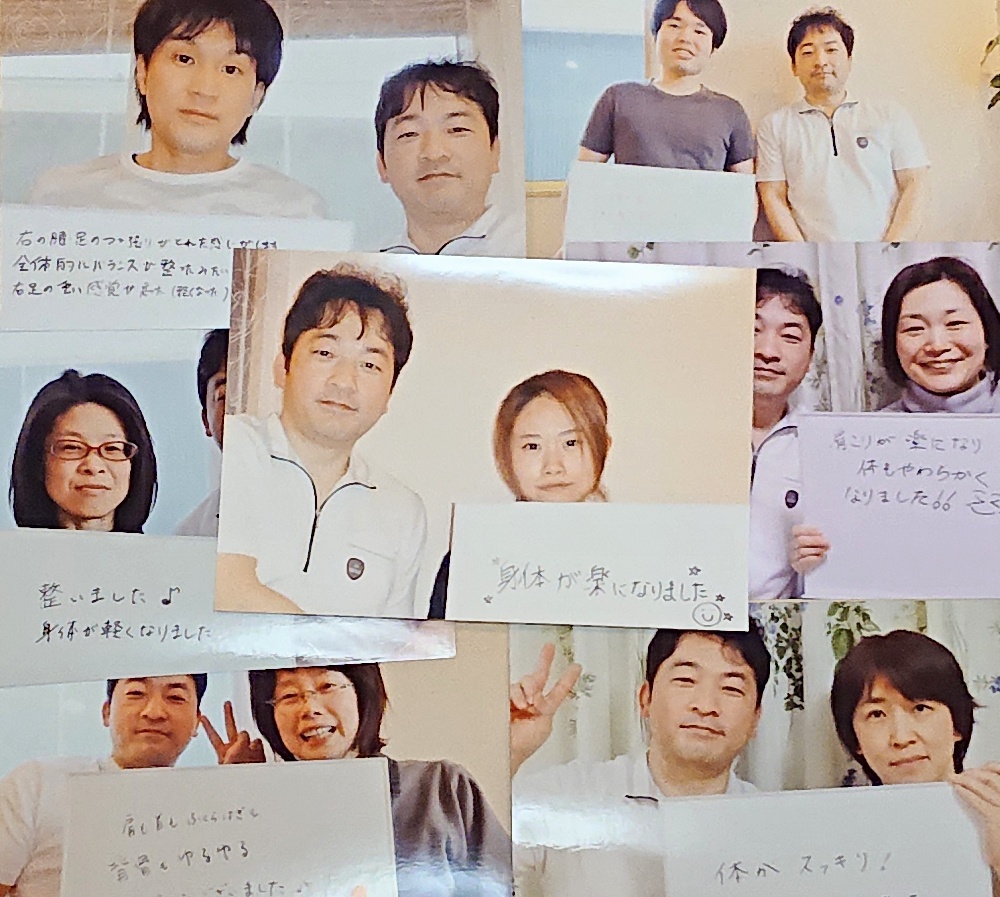 右の腰 足のつっ張りがとれた感じがします
全体的にバランスが整ったみたい
右足の重い感覚が
整いました♪
身体が軽くなりました
"身体が楽になりました
肩こりが楽になり
体もやわらかく
なりました!!
肩も首もふくらはぎも
背骨もゆるゆる
ました♪
体がスッキリ!